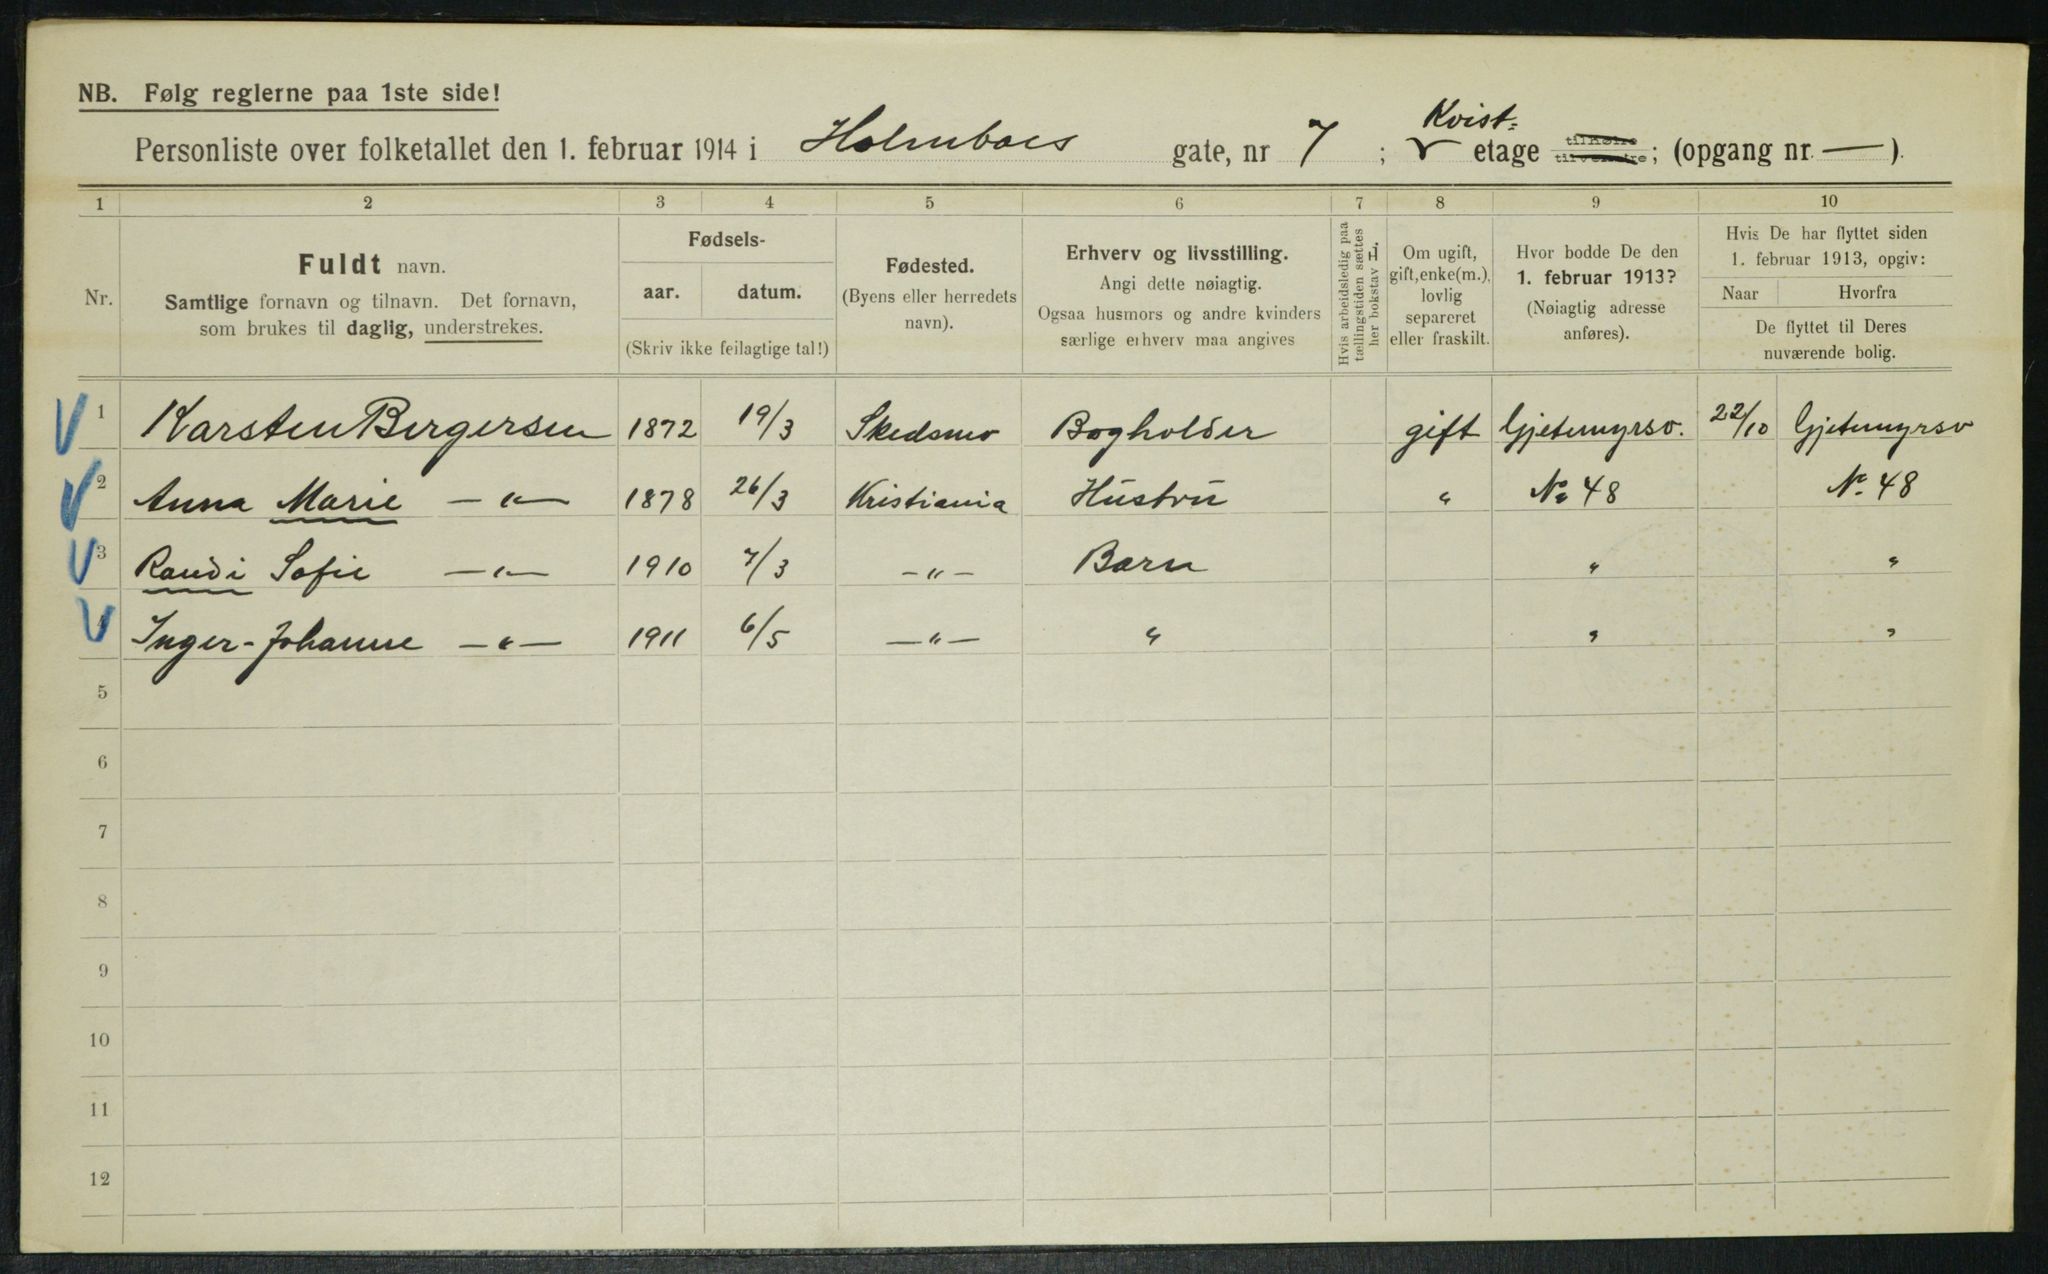 NB. Følg reglerne paa 1ste side!
Personliste over folketallet den 1. februar 1914 i Holmboes gate, nr 7 ; Kvist= etage tilhøire tilvenstre; (opgang nr. — ).
1 2 3 4 5 6 7 8 9 10
Nr.
Fuldt navn.
Samtlige fornavn og tilnavn. Det fornavn,
som brukes til daglig, understrekes.
Fødsels-
aar. datum.
(Skriv ikke feilagtige tal!)
Fødested.
(Byens eller herredets
navn).
Erhverv og livsstilling.
Angi dette nøiagtig.
Ogsaa husmors og andre kvinders
særlige erhverv maa angives
Hvis arbeidsledig paa
tællingstiden sættes
her bokstav L.
Om ugift,
gift, enke(m.),
lovlig
separeret
eller fraskilt.
Hvor bodde De den
1. februar 1913?
(Nøiagtig adresse
anføres).
Hvis De har flyttet siden
1. februar 1913, opgiv:
Naar Hvorfra
De flyttet til Deres
nuværende bolig.
1 Karsten Bergersen 1872 19/3 Skedsmo Bogholder gift Gjetemyrsv. 22/10 Gjetemyrsv
2 Anna Marie —"— 1878 26/3 Kristiania Hustru " No 48 No 48
3 Randi Sofie —"— 1910 7/3 —"— Barn " "
4 Inger-Johanne —"— 1911 6/5 —"— " " "
5
6
7
8
9
10
11
12